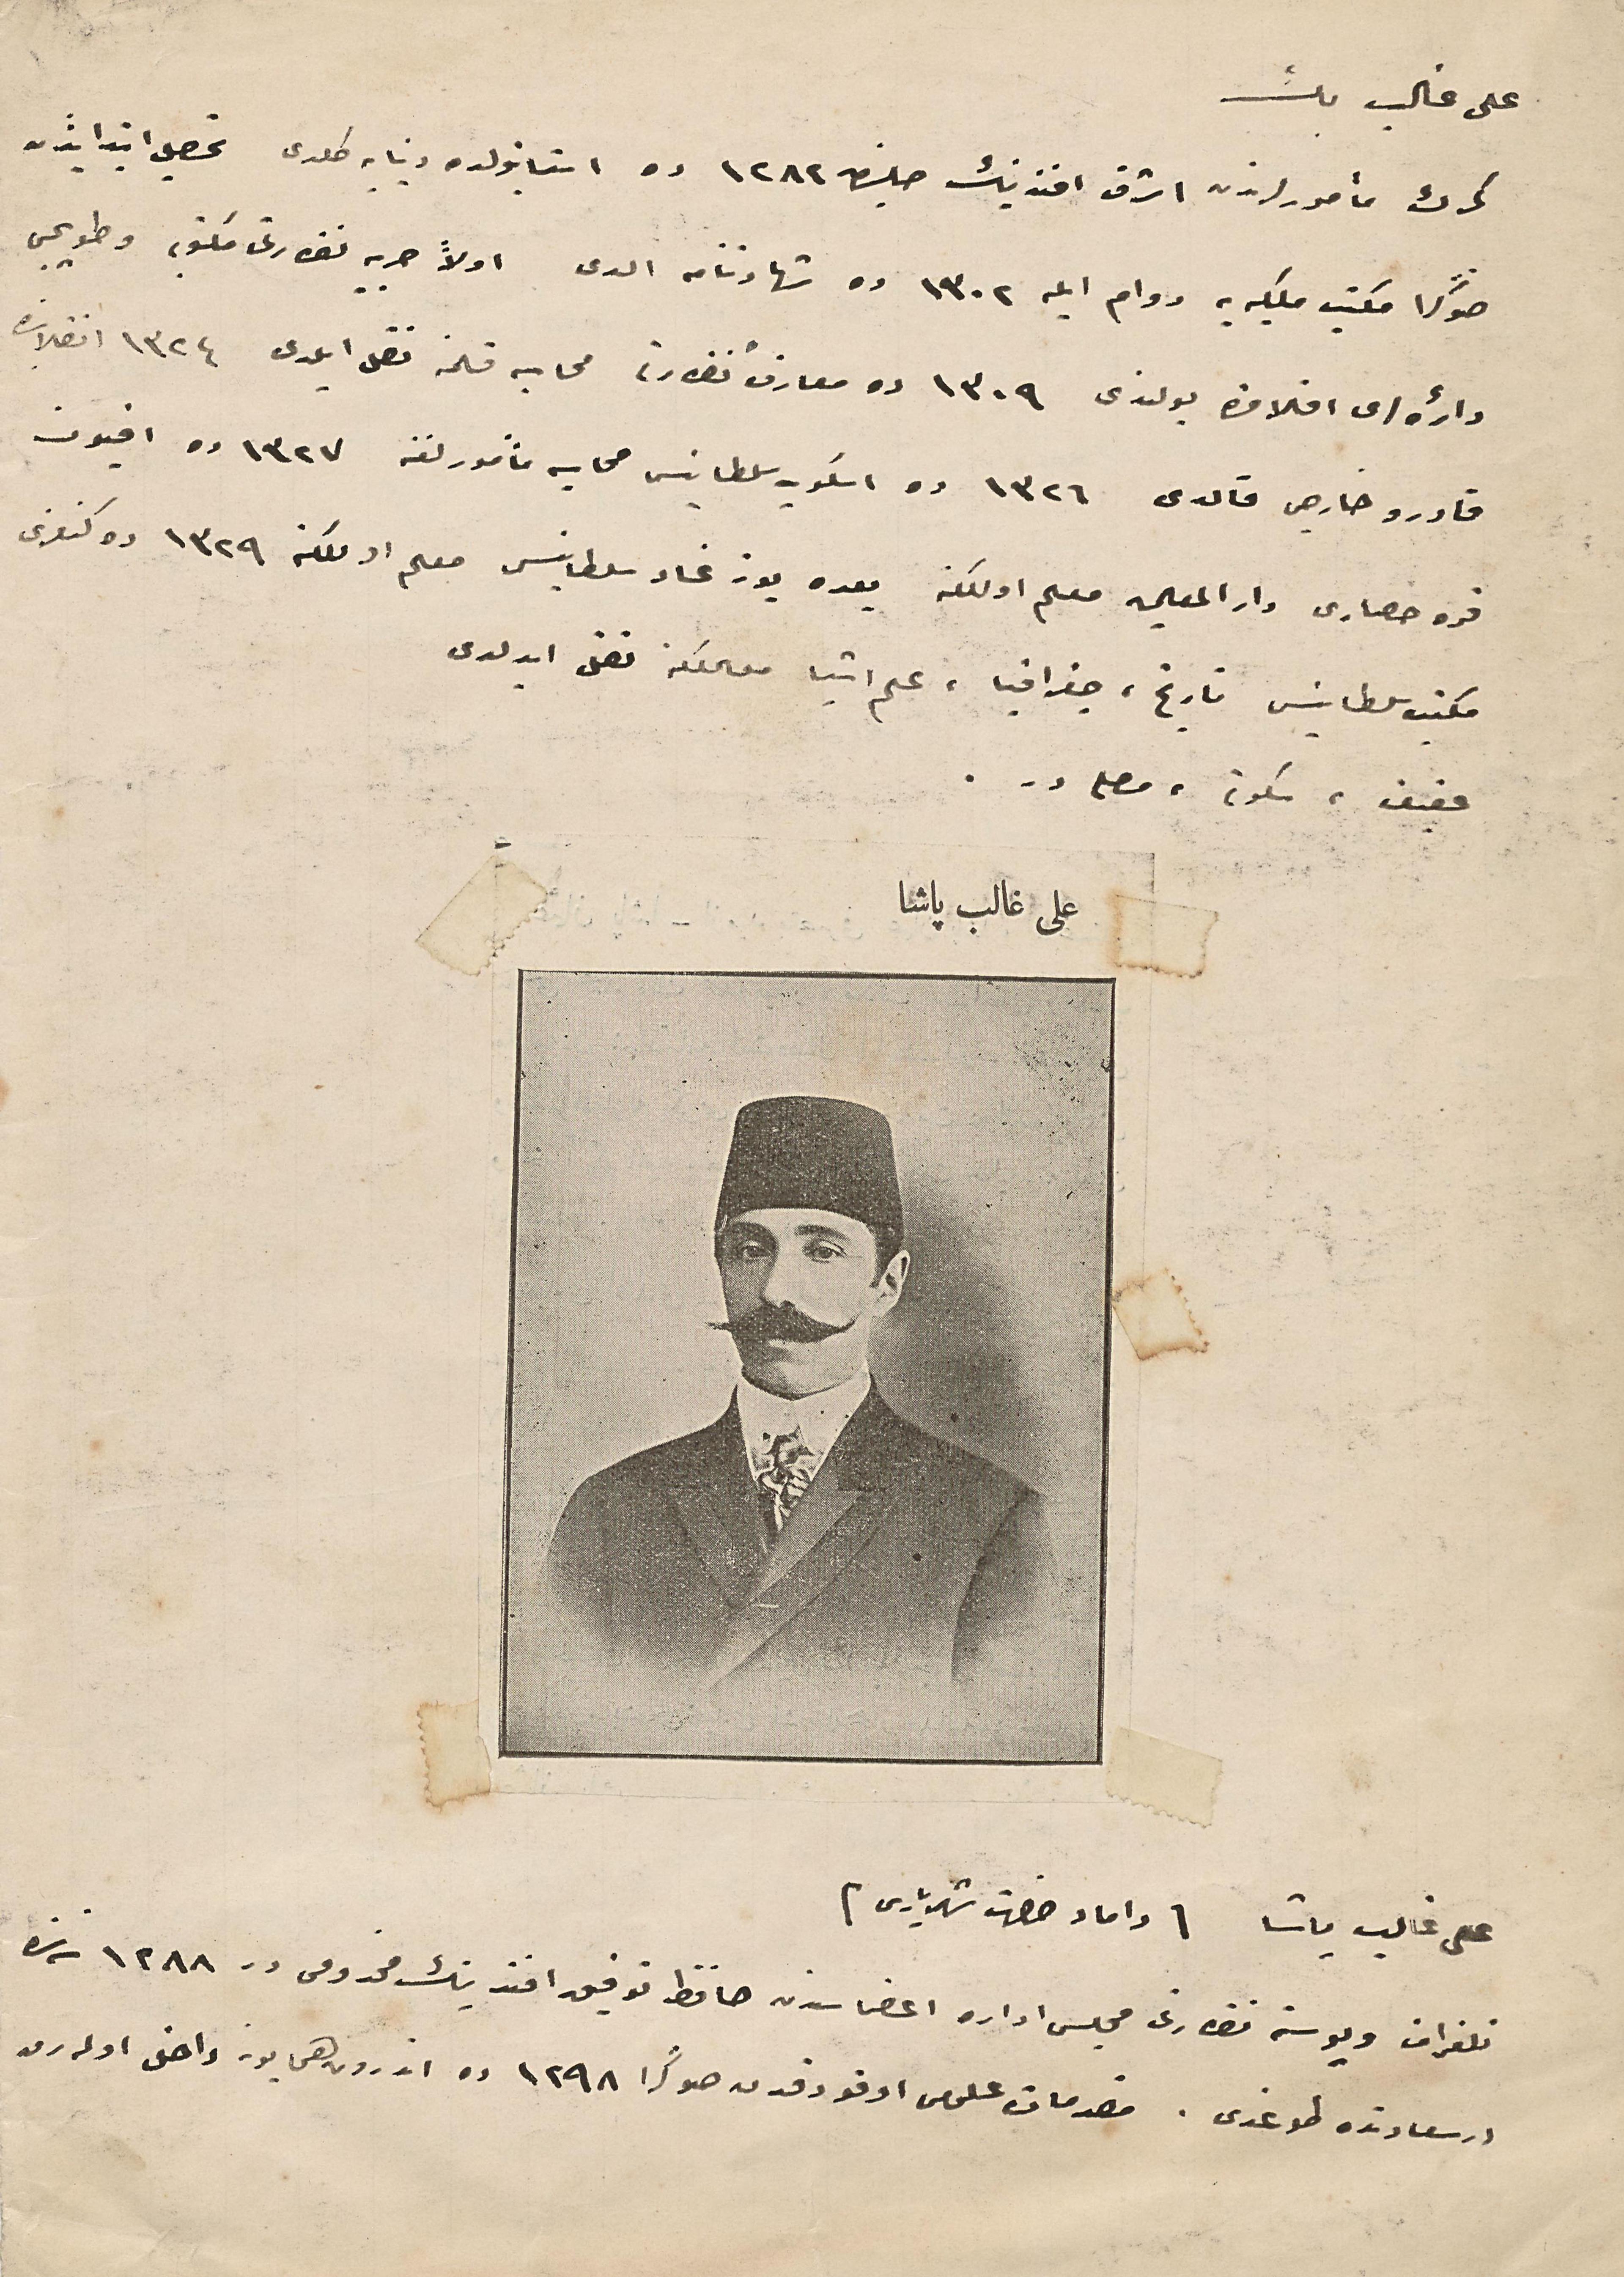 على غالب بك
كمرك مأمورلرندن اشرف افندينك صلبندن ١٢٨٢ ده استانبولده دنيايه كلدى تحصيل ابتدائيدن
صوكرا مكتب ملكيه يه دوام ايله ١٣٠٢ ده شهادتنامه الدى اولاً حربيه نظارتى مكتوبى وطوپجى
دائره‌سى اقلامنده بولندى ١٣٠٩ ده معارف نظارتى محاسبه قلمنه نقل ايلدى ١٣٢٤ انقلابنده
قادرو خارجى قالدى ١٣٢٦ ده اسكوب سلطانيسى محاسبه مأمورلغنه ١٣٢٧ ده افيون
قره حصارى دار المعلمين معلم اوللكنه بعده يوزغاد سلطانيسى معلم اوللكنه ١٣٢٩ ده
مكتب سلطانيسى تاريخ ، جغرافيا ، علم اشيا معلملكنه نقل ايدلدى
عفيف ، سكوتى ، مصلى در .
على غالب پاشا
على غالب پاشا ( داماد حضرت شهريارى )
تلغراف وپوسته نظارتى مجلس اداره اعضاسندن حافظ توفيق افندينك مخدومى در ١٢٨٨ سنه‌سنده
درسعادتده طوغدى . مقدمات علومى اوقودقدن صوكرا ١٢٩٨ ده اندرون همايونه داخل اوله‌رق